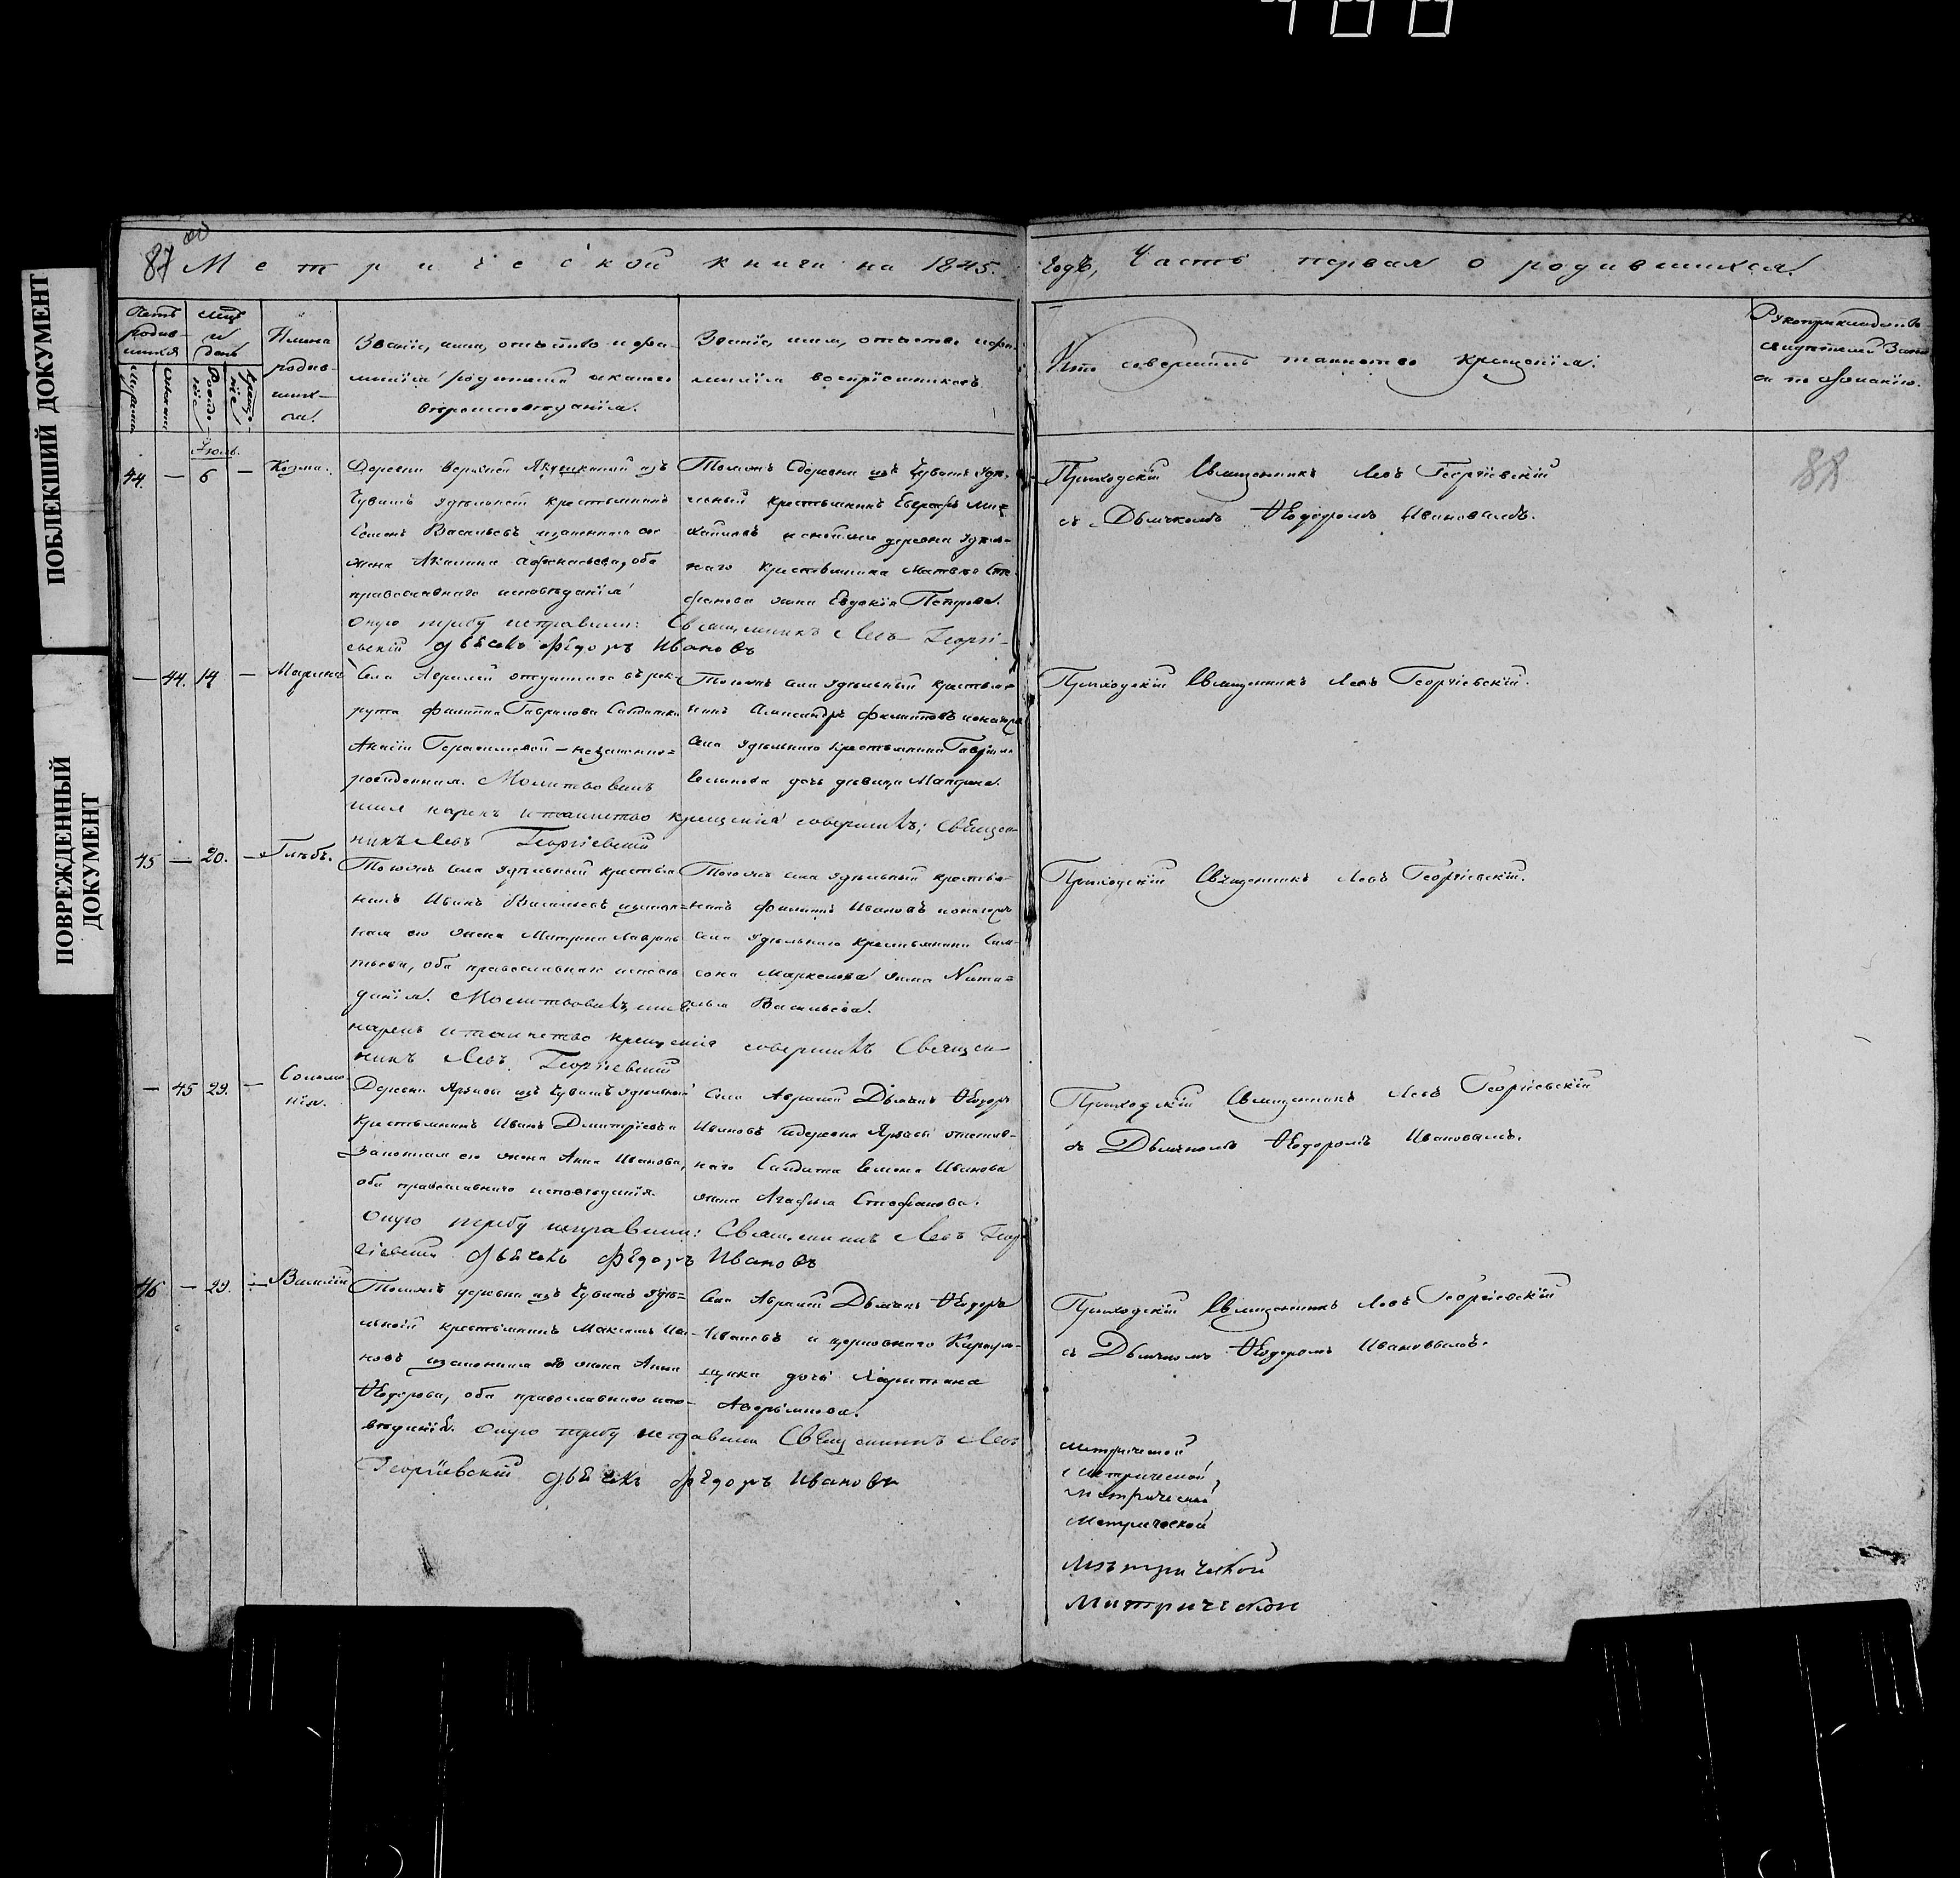 488
ПОБЛЕКШИЙ ДОКУМЕНТ
ПОВРЕЖДЕННЫЙ
ДОКУМЕНТ
87 Метрической книги на 1845. годъ, Часть первая о родившихся.
Имена
родив-
ших-
ся.
Званіе, имя, отчество и фами-
милія родителей и какого
вѣроисповѣданія.
Званіе, имя, отчество и фами-
милія воспріемниковъ.
Кто совершилъ таинство крещенія.
Рукоприкладство
свидетелей Запи
си по желанію.
Іюль.
44. — 6 — Козма.
Деревни Верхней изъ
Чувашъ удѣльной крестьянинъ
Семенъ Васильевъ изаконная его
жена Акилина Афонасьева, оба
православнаго исповѣданія
Оную требу исправили: Священникъ Левъ Георгі-
евскій дьячокъ Фѣдоръ Ивановъ
Тоюжъ деревни изъ Чувашъ удѣ-
льный крестьянинъ Евграфъ Ми-
хайловъ и тойже деревни удѣль-
наго крестьянина Матвѣя Сте
фанова жена Евдокія Петрова.
Приходскій Священникъ Левъ Георгіевскій
съ Дьячкомъ Ѳеодоромъ Ивановымъ.
88
— 44. 14 — Марина
Села Абрамей отданнаго въ рек-
рута Филиппа Гаврилова Салдатки
Анисіи Герасимовой — незаконно-
рожденная. Молитвовалъ
имя нарекъ и таинство крещенія совершилъ; Священ-
никъ Левъ Георгіевскій
Тогожъ села удѣльный крестья-
нинъ Александръ Филиповъ и тогоже
села удѣльнаго крестьянина Гаврила
Семенова дочь дѣвица Матрена.
Приходскій Священникъ Левъ Георгіевскій.
45 — 20. — Глѣбъ.
Тогожъ села удѣльный крестья
нинъ Иванъ Васильевъ изакон-
ная его жена Матрена Лаврен-
тьева, оба православнаго исповѣ
данія. Молитвовалъ, имя
нарекъ и таинство крещенія совершилъ Священ-
никъ Левъ Георгіевскій
Тогожъ села удѣльный крестья-
нинъ Филиппъ Ивановъ и тогоже
села удѣльнаго крестьянина Сам-
сона Маркелова жена Ната-
лья Васильева.
Приходскій Священникъ Левъ Георгіевскій.
— 45 29. — Соломо
нія.
Деревни Арзавы изъ Чувашъ удѣльной
Крестьянинъ Иванъ Дмитріевъ и
Законная его жена Анна Иванова,
оба православнаго исповѣданія.
Оную требу исправили: Священникъ Левъ Геор
гіевскій дьячокъ Фѣдоръ Ивановъ
Села Абрамей Дьячекъ Ѳеодоръ
Ивановъ и деревни Арзавы отстав-
наго Салдата Семена Иванова
жена Агафья Стефанова.
Приходскій Священникъ Левъ Георгіевскій
съ Дьячкомъ Ѳеодоромъ Ивановымъ.
46 — 29. — Василій
Тоюжъ деревни изъ Чувашъ удѣ-
льной крестьянинъ Максимъ Ива-
новъ изаконная его жена Анна
Ѳеодорова, оба православнаго испо-
вѣданія. Оную требу исправили Священникъ Левъ
Георгіевскій дьячекъ Фѣдоръ Ивановъ
Села Абрамей Дьячекъ Ѳеодоръ
Ивановъ и церковнаго Караул-
щика дочь Харитина
Приходскій Священникъ Левъ Георгіевскій
съ Дьячкомъ Ѳеодоромъ Ивановымъ.
метрической
метрической
метрической
Метрической
Метрической
Митрической